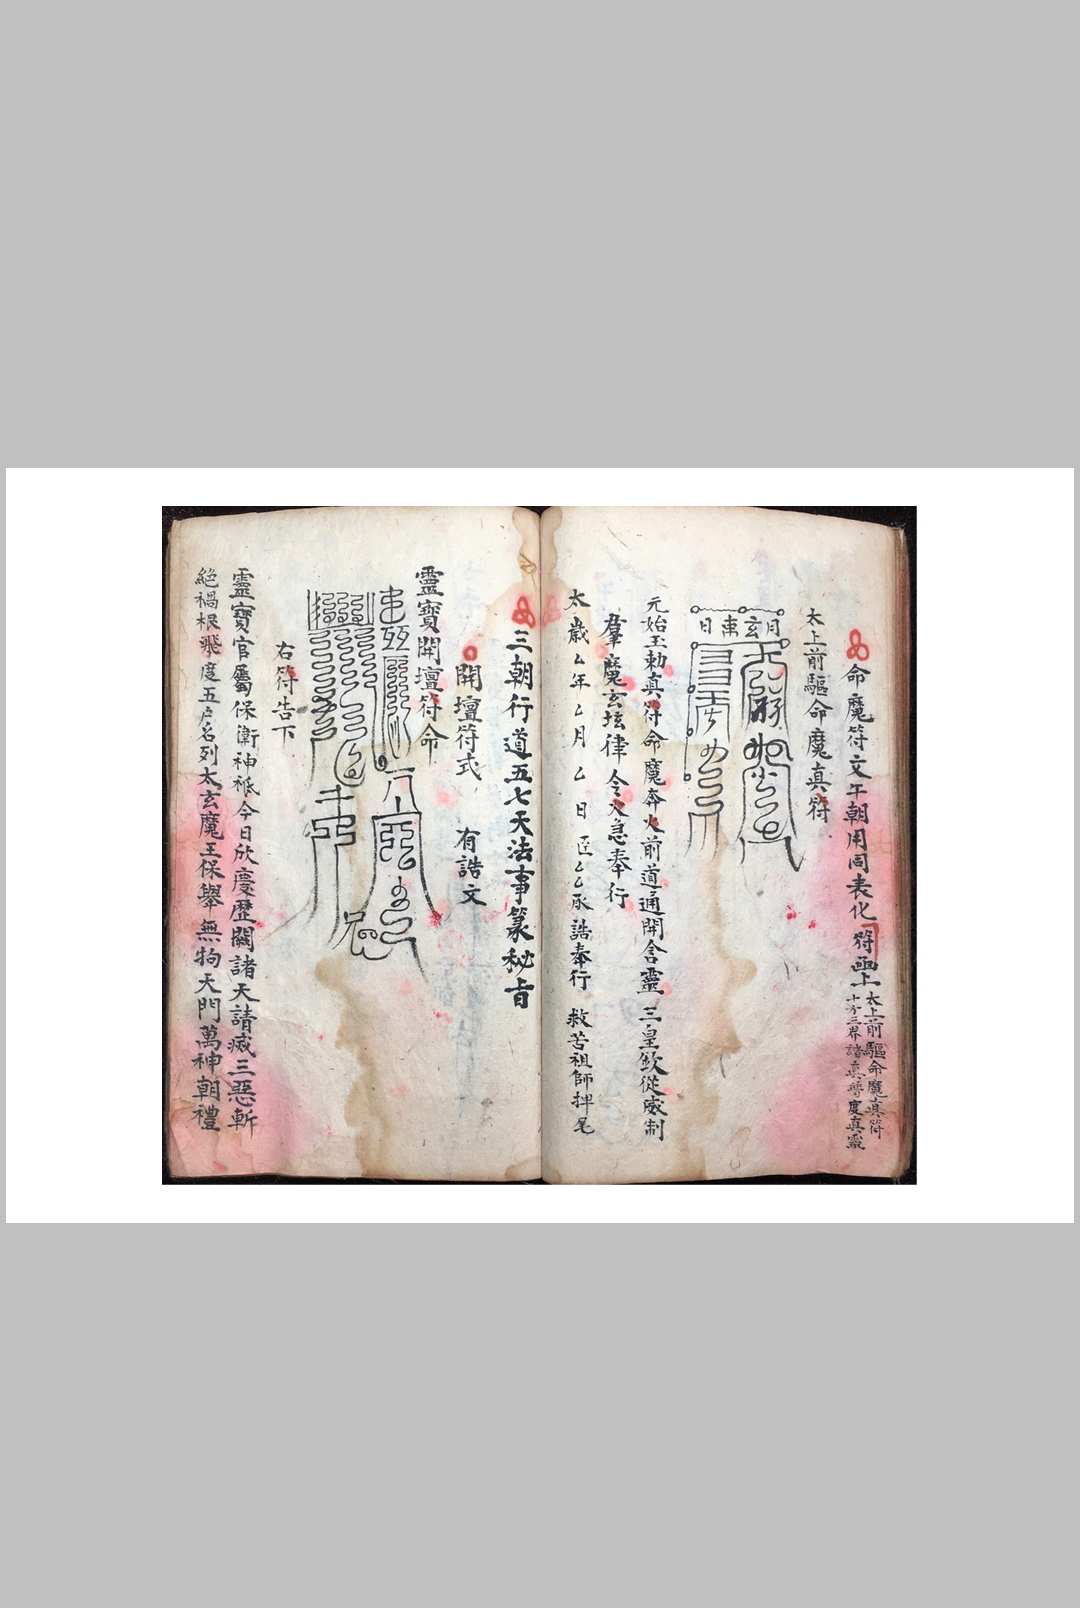 命魔符文午朝用同表化 符函上 太上前驅命魔真符
十方三界諸真普度真靈
太上前驅命魔真符
日東玄月
元始玉勅真符命魔奔火前道通開含靈 三皇欽從威制
羣魔玄坛律令火急奉行
太歲 年 月 日 臣 承誥奉行 救苦祖師押尾
三朝行道五七天法事篆秘旨
開壇符式 有誥文
靈寶開壇符命
右符告下
靈寶官屬保衛神祇今日欣慶歷關諸天請滅三惡斬
絕禍根飛度五户名列太玄魔王保舉無拘天門萬神朝禮